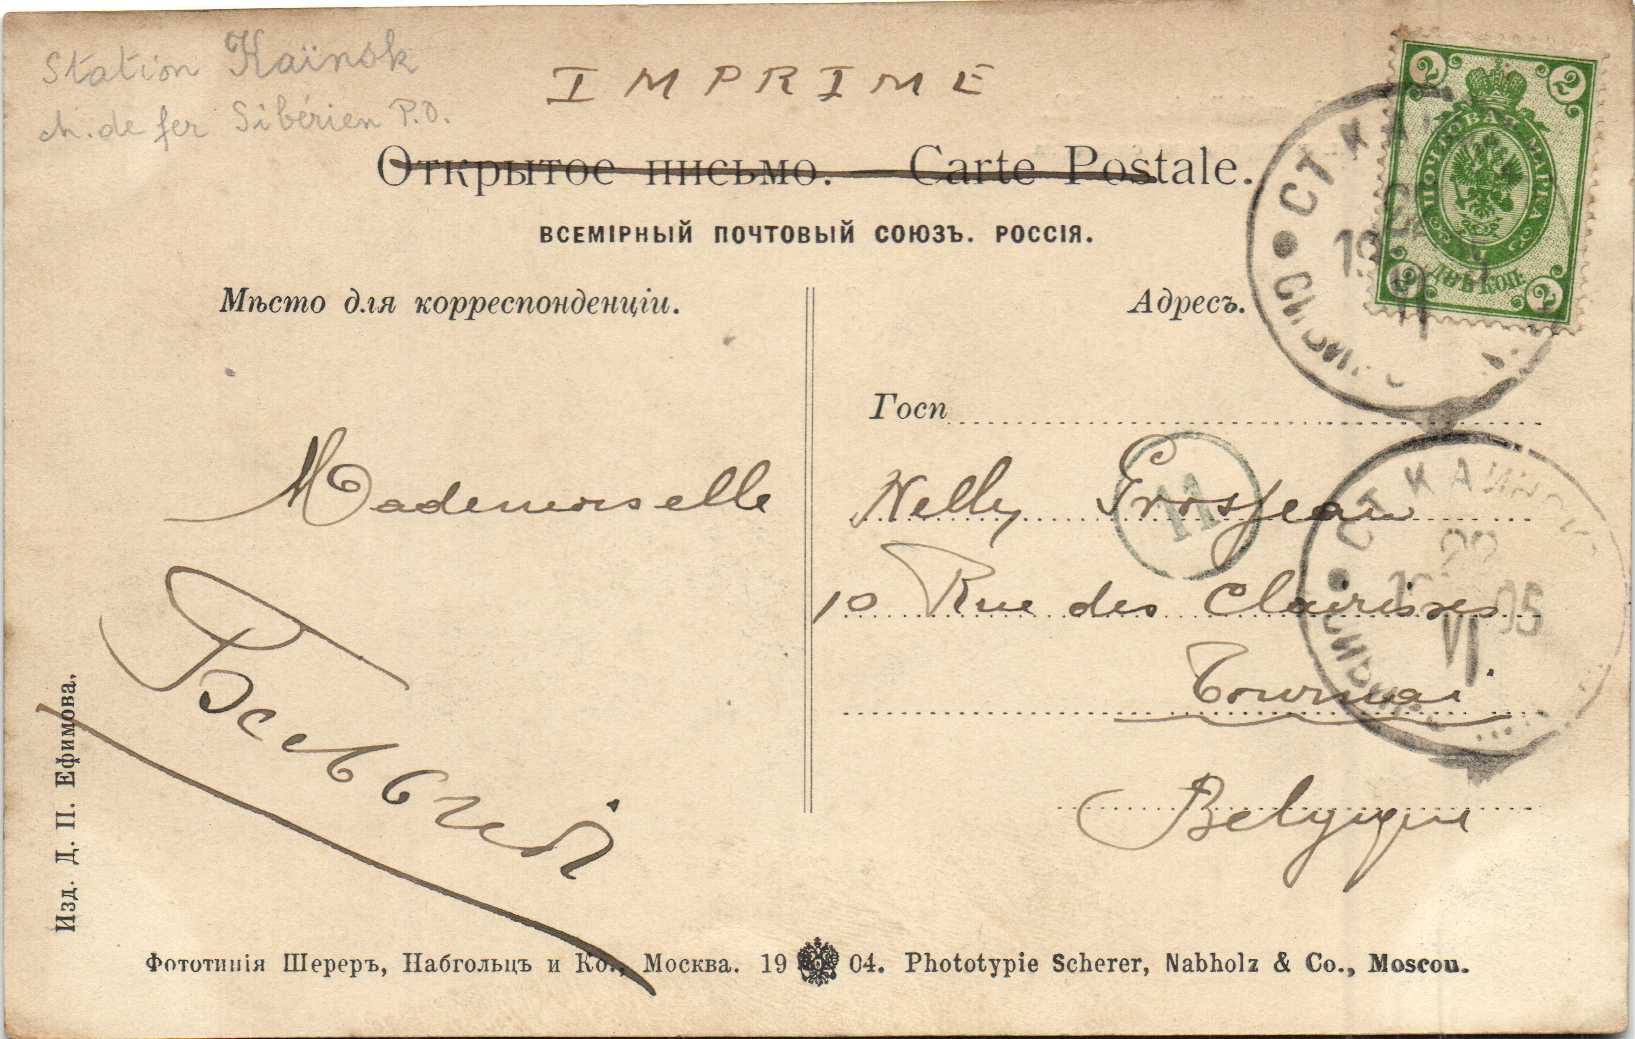 Station Kaïnsk
ch. de fer Sibérien P.O.
IMPRIME
Открытое письмо. — Carte Postale.
ВСЕМІРНЫЙ ПОЧТОВЫЙ СОЮЗЪ. РОССІЯ.
Мѣсто для корреспонденціи.
Адресъ.
ПОЧТОВАЯ МАРКА
2 2 2 2
ДВѢ КОП.
СТ КА
СИБИР
Госп
Mademoiselle
Nelly Grosjean
10 Rue des Clairisses
Tournai
Belgique
11
СТ КАИНСК
22
05
VI
СИБИР
Бельгій
Изд. Д. П. Ефимова.
Фототипія Шереръ, Набгольцъ и Ко., Москва. 19 04. Phototypie Scherer, Nabholz & Co., Moscou.